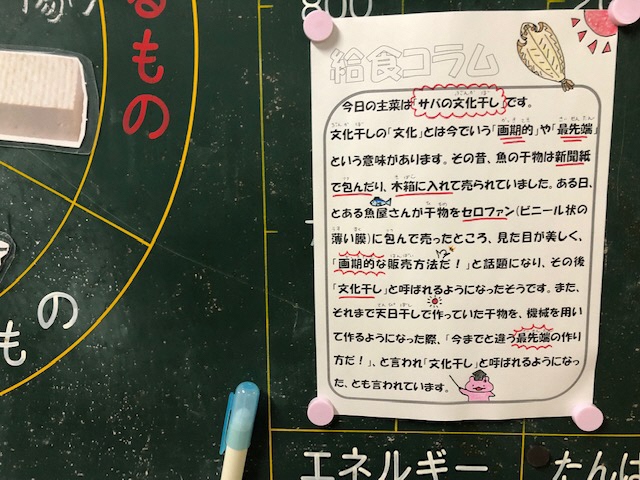 給食コラム
今日の主菜は「サバの文化干し」です。
文化干しの「文化」とは今でいう「画期的」や「最先端」
という意味があります。その昔、魚の干物は新聞紙
で包んだり、木箱に入れて売られていました。ある日、
とある魚屋さんが干物をセロファン(ビニール状の
薄い膜)に包んで売ったところ、見た目が美しく、
「画期的な販売方法だ!」と話題になり、その後
「文化干し」と呼ばれるようになったそうです。また、
それまで天日干しで作っていた干物を、機械を用い
て作るようになった際、「今までと違う最先端の作り
方だ!」、と言われ「文化干し」と呼ばれるようになっ
た、とも言われています。
るもの
もの
800
エネルギー
たんぱ